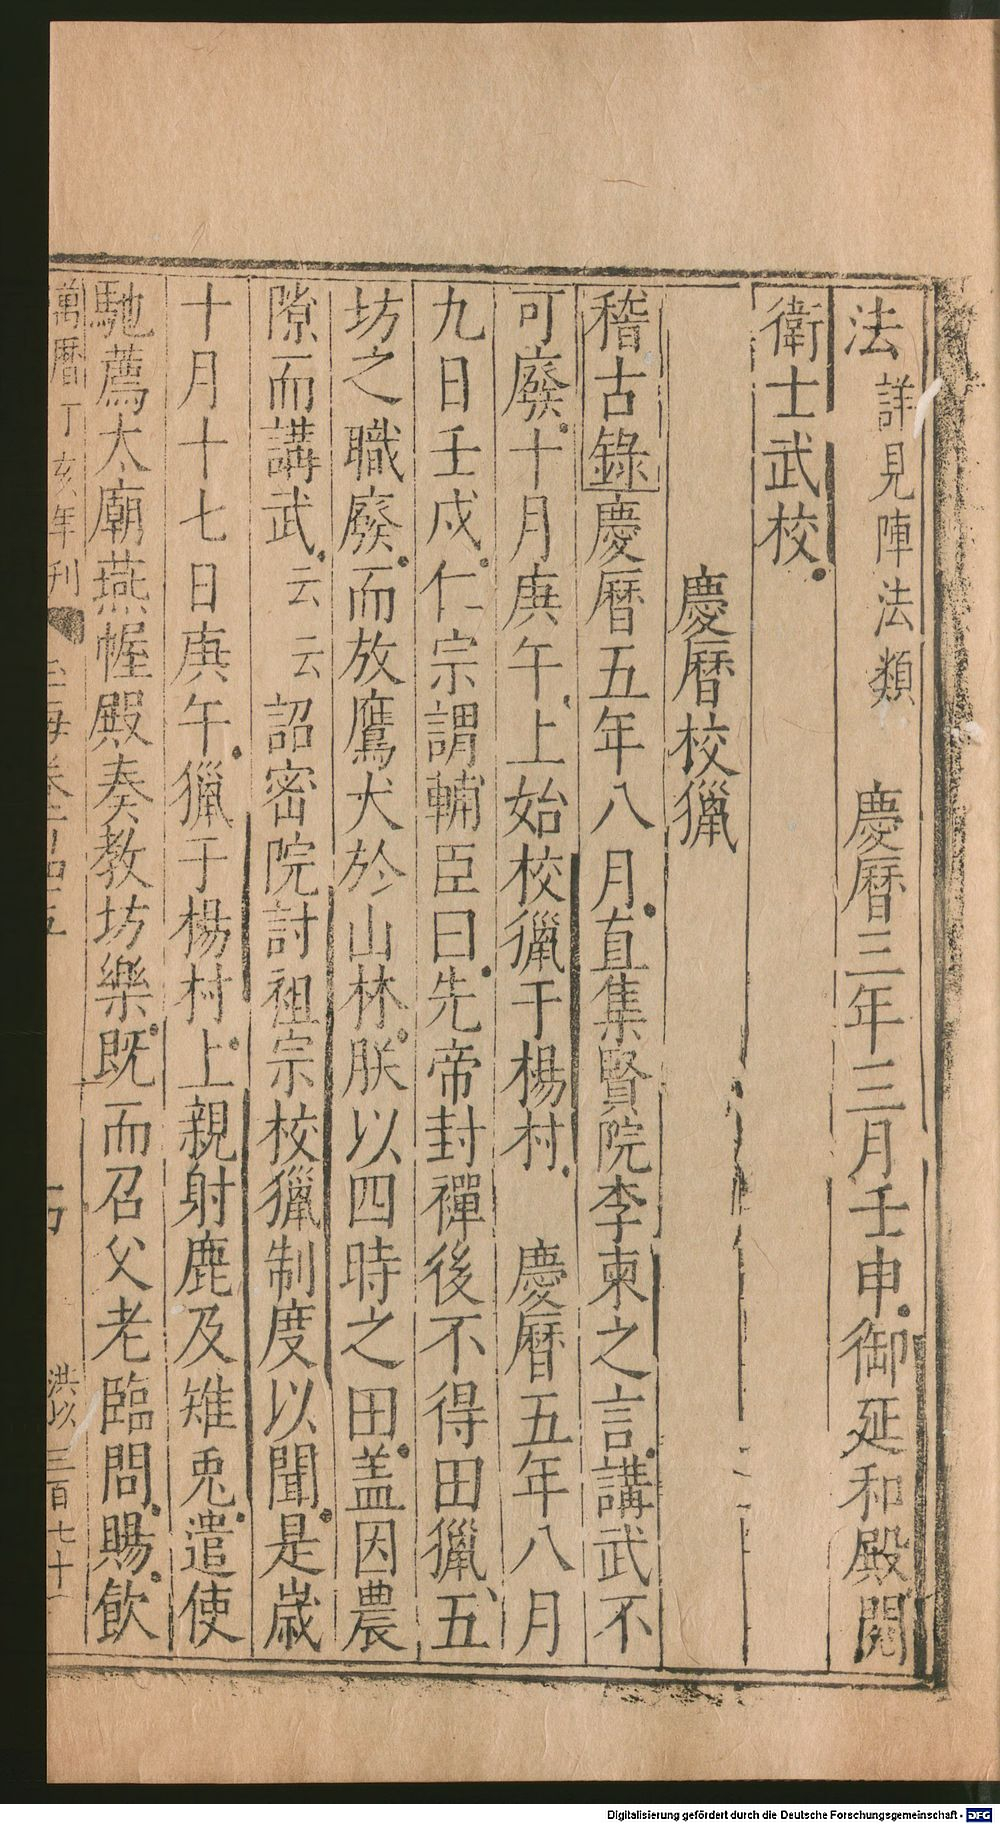 法詳見陣法類　慶曆三年三月壬申御延和殿閱
衛士武校
慶曆校獵
稽古錄慶曆五年八月直集賢院李柬之言講武不
可廢十月庚午上始校獵于楊村　慶曆五年八月
九日壬戌仁宗謂輔臣曰先帝封禪後不得田獵五
坊之職廢而放鷹犬於山林朕以四時之田蓋因農
隙而講武云云詔密院討祖宗校獵制度以聞是歲
十月十七日庚午獵于楊村上親射鹿及雉兎遣使
馳薦太廟燕幄殿奏教坊樂既而召父老臨問賜飲
萬曆丁亥年刊
洪以三百七十
Digitalisierung gefördert durch die Deutsche Forschungsgemeinschaft - DFG